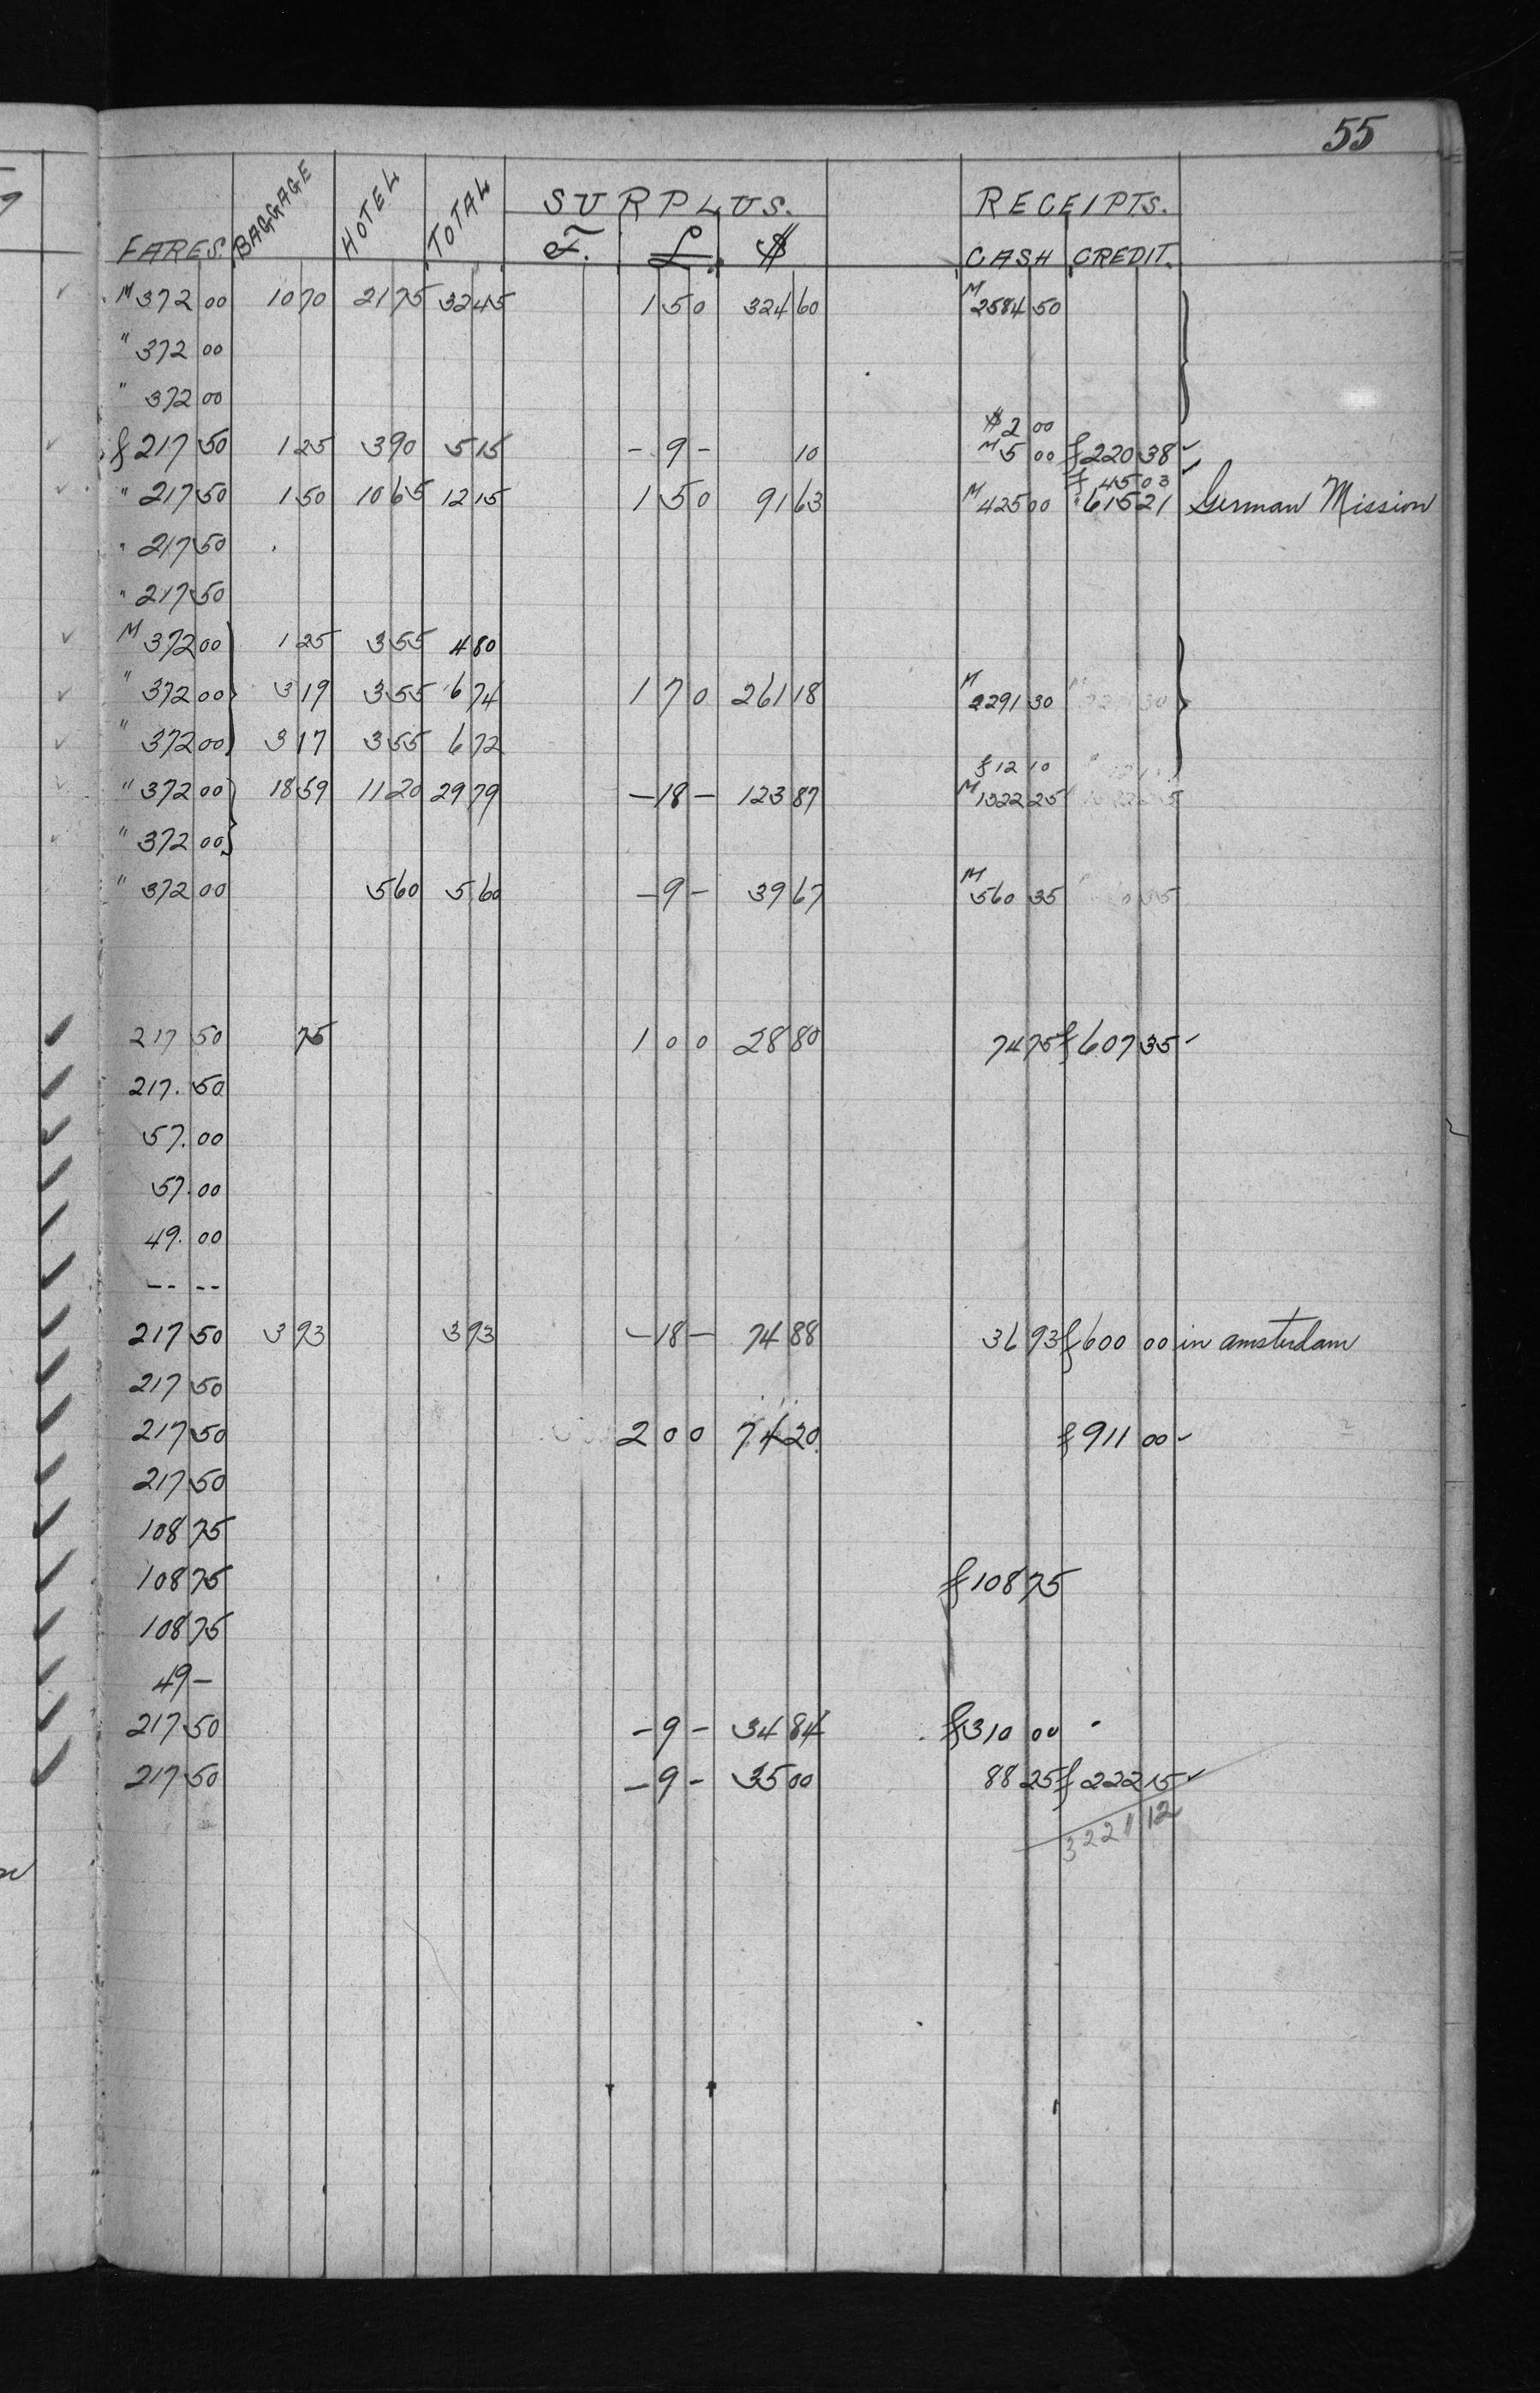 55
FARES. BAGGAGE HOTEL TOTAL SURPLUS. RECEIPTS.
£ $ CASH CREDIT.
M 372 00 10 70 21 75 32 45 1 5 0 324 60 M 2584 50
" 372 00
" 372 00
$ 2 00
f 217 50 1 25 3 90 5 15 - 9 - 10 M 5 00 f 220 38 ✓
f 45 03 ✓
" 217 50 1 50 10 65 12 15 1 5 0 91 63 M 425 00 " 615 21 German Mission
" 217 50
" 217 50
M 372 00 1 25 3 55 4 80
" 372 00 3 19 3 55 6 74 1 7 0 261 18 M 2291 30
" 372 00 3 17 3 55 6 72
f 12 10
" 372 00 18 59 11 20 29 79 - 18 - 123 87 M 1322 25
" 372 00
" 372 00 5 60 5 60 - 9 - 39 67 M 560 35
217 50 75 1 0 0 28 80 74 75 f 607 35 ✓
217. 50
57. 00
57. 00
49. 00
-- --
217 50 3 93 3 93 - 18 - 74 88 36 93 f 600 00 in amsterdam
217 50
217 50 2 0 0 74 20 f 911 00 ✓
217 50
108 75
108 75 f 108 75
108 75
49 -
217 50 - 9 - 34 84 f 310 00
217 50 - 9 - 35 00 88 25 f 222 15 ✓
3221 12